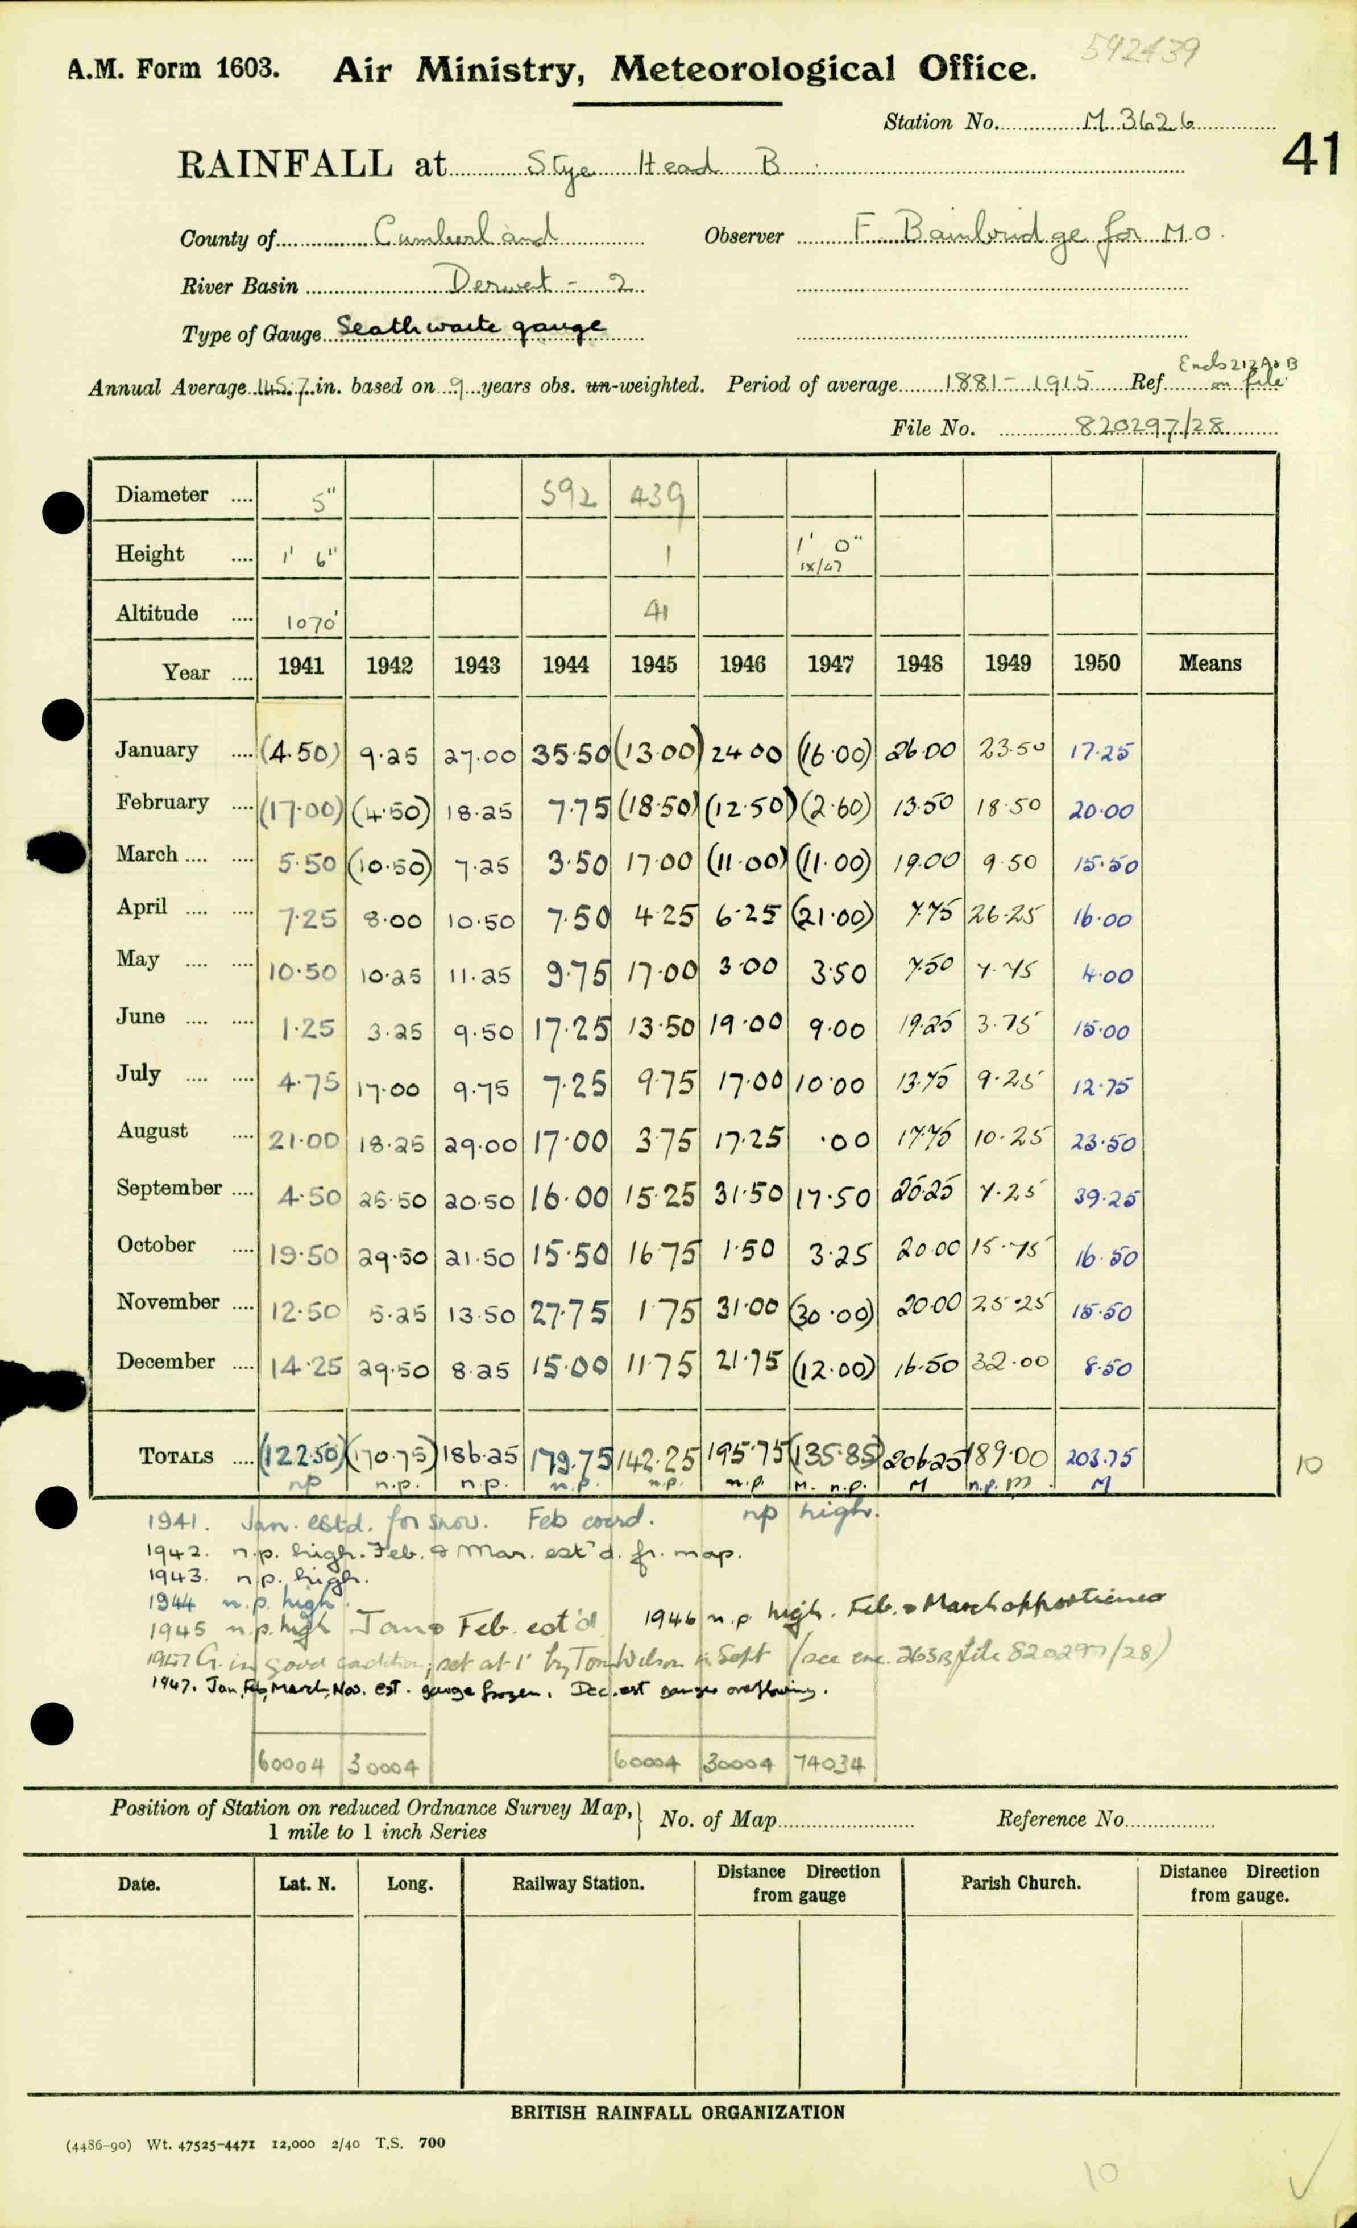 592439
A.M. Form 1603. Air Ministry, Meteorological Office.
Station No. M 3626
41
RAINFALL at Stye Head B
County of Cumberland Observer F. Bainbridge for M.O.
River Basin Derwent - 2
Type of Gauge Seathwaite gauge
Annual Average 145.7 in. based on 9 years obs. un-weighted. Period of average 1881-1915 Ref Encls 212A&B on file
File No. 820297/28
Diameter .... 5" 592 439
Height .... 1' 6" 1 1' 0" IX/47
Altitude .... 1070' 41
Year .... 1941 1942 1943 1944 1945 1946 1947 1948 1949 1950 Means
January .... (4.50) 9.25 27.00 35.50 (13.00) 24.00 (16.00) 26.00 23.50 17.25
February .... (17.00) (4.50) 18.25 7.75 (18.50) (12.50) (2.60) 13.50 18.50 20.00
March .... .... 5.50 (10.50) 7.25 3.50 17.00 (11.00) (11.00) 19.00 9.50 15.50
April .... .... 7.25 8.00 10.50 7.50 4.25 6.25 (21.00) 7.75 26.25 16.00
May .... .... 10.50 10.25 11.25 9.75 17.00 3.00 3.50 7.50 7.75 4.00
June .... .... 1.25 3.25 9.50 17.25 13.50 19.00 9.00 19.25 3.75 15.00
July .... .... 4.75 17.00 9.75 7.25 9.75 17.00 10.00 13.75 9.25 12.75
August .... 21.00 18.25 29.00 17.00 3.75 17.25 .00 17.75 10.25 23.50
September .... 4.50 25.50 20.50 16.00 15.25 31.50 17.50 25.25 7.25 39.25
October .... 19.50 29.50 21.50 15.50 16.75 1.50 3.25 20.00 15.75 16.50
November .... 12.50 5.25 13.50 27.75 1.75 31.00 (30.00) 20.00 25.25 15.50
December .... 14.25 29.50 8.25 15.00 11.75 21.75 (12.00) 16.50 32.00 8.50
TOTALS .... (122.50) (170.75) 186.25 179.75 142.25 195.75 (135.85) 206.25 189.00 203.75
np n.p. n.p. n.p. n.p. n.p. M. n.p. M n.p. M M
10
1941. Jan. estd. for snow. Feb coord. np high.
1942. n.p. high. Feb. & Mar. est'd. fr. map.
1943. n.p. high.
1944 n.p. high.
1945 n.p. high Jan & Feb. est'd 1946 n.p. high. Feb. & March apportioned
1947 G. in good condition; set at 1' by Tom Wilson in Sept (see enc. 263B file 820297/28)
1947. Jan, Feb, March, Nov. est. gauge frozen. Dec. est gauge overflowing.
60004 30004 60004 30004 74034
Position of Station on reduced Ordnance Survey Map, 1 mile to 1 inch Series } No. of Map Reference No
Date. Lat. N. Long. Railway Station. Distance Direction from gauge Parish Church. Distance Direction from gauge.
BRITISH RAINFALL ORGANIZATION
(4486-90) Wt. 47525-4471 12,000 2/40 T.S. 700
10